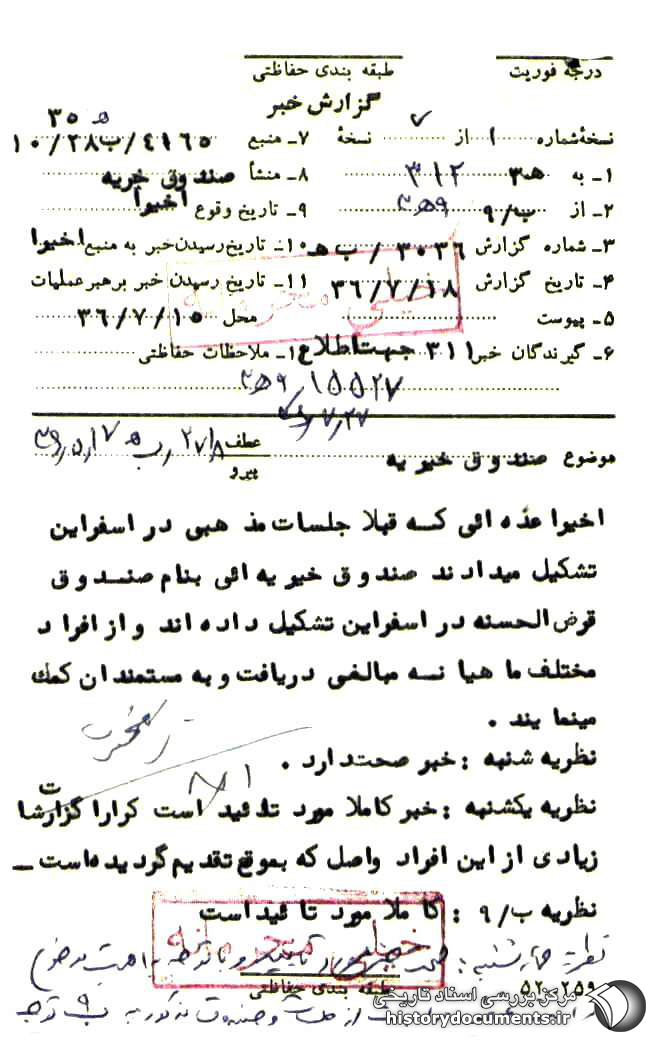 درجه فوریت
طبقه بندی حفاظتی
گزارش خبر
نسخهٔ شماره ۱ از نسخهٔ
۷ـ منبع ۱۰/۲۸ب/۴۱۶۵
ه ۳۵
۱ـ به ۳ه ۳۱۲
۸ـ منشأ صندوق خریه
۲ـ از ۹/ب ۹ه۳
۹ـ تاریخ وقوع اخیرا
۳ـ شماره گزارش ۳۰۳۶ / ب ه
۱۰ـ تاریخ رسیدن خبر به منبع اخیرا
۴ـ تاریخ گزارش ۳۶/۷/۱۸
۱۱ـ تاریخ رسیدن خبر برهبر عملیات
۵ـ پیوست
محل ۳۶/۷/۱۵
۶ـ گیرندگان خبر ۳۱۱ جهت اطلاع
۱ـ ملاحظات حفاظتی
۱۵۵۲۷
خیلی محرمانه
موضوع صندوق خیریه
عطف
پیرو
اخیرا عده ائی که قبلا جلسات مذهبی در اسفراین
تشکیل میدادند صندوق خیریه ائی بنام صندوق
قرض الحسنه در اسفراین تشکیل داده اند و از افراد
مختلف ماهیانه مبالغی دریافت و به مستمندان کمک
مینمایند .
نظریه شنبه : خبر صحت دارد .
نظریه یکشنبه : خبر کاملا مورد تائید است کرارا گزارشات
زیادی از این افراد واصل که بموقع تقدیم گردیده است ـ
نظریه ب/۹ : کاملا مورد تائید است
خیلی محرمانه
نظریه چهارشنبه :
طبقه بندی حفاظتی
۵۲ـ۲۵۹
مرکز بررسی اسناد تاریخی
historydocuments.ir